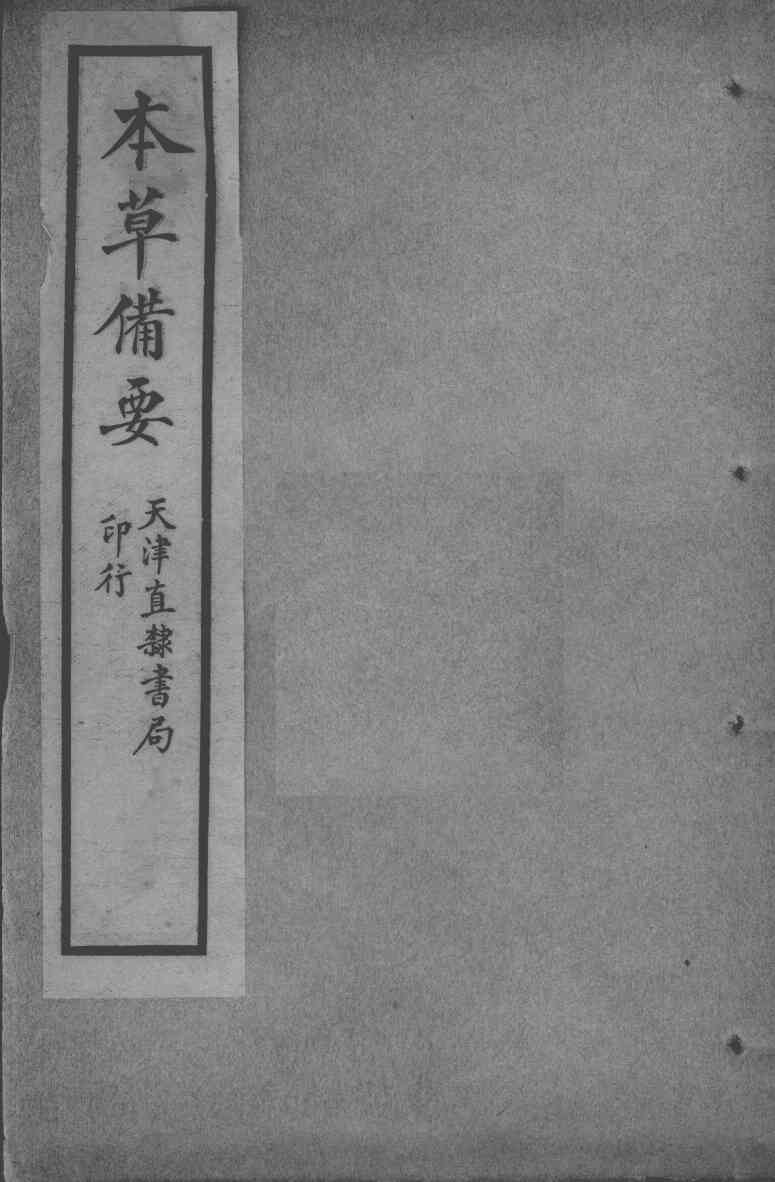 本草備要
天津直隸書局
印行